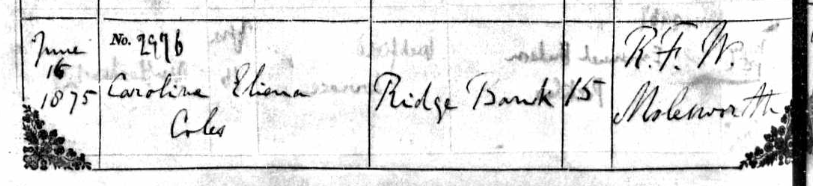 June
16
1875
No. 2976
Caroline Eliena
Coles
Ridge Bank
15
R. F. W.
Molesworth